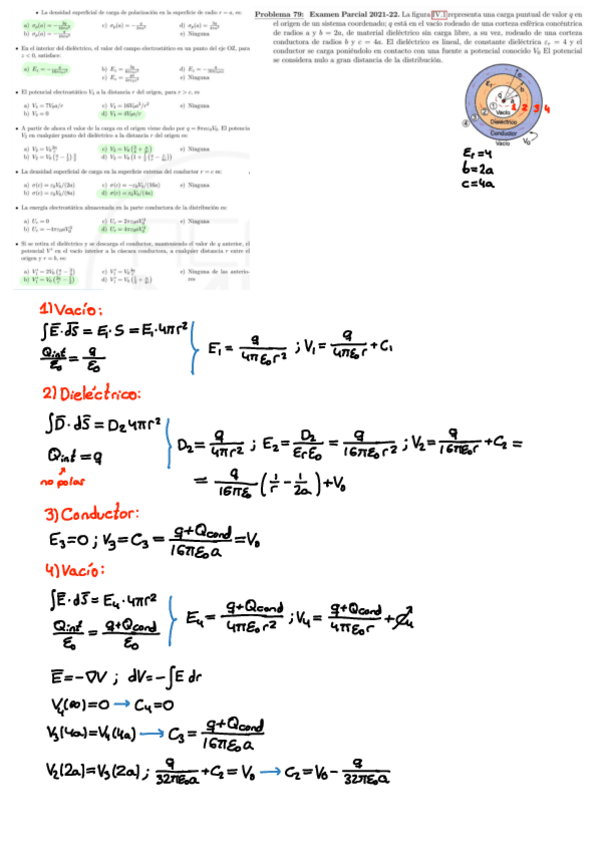 • La densidad superficial de carga de polarización en la superficie de radio r = a, es:
e) Ninguna
• En el interior del dieléctrico, el valor del campo electrostático en un punto del eje OZ, para z < 0, satisface:
e) Ninguna
• El potencial electrostático V₄ a la distancia r del origen, para r > c, es
a) V₄ = 7V₀a/r
b) V₄ = 0
c) V₄ = 16V₀a²/r²
d) V₄ = 4V₀a/r
e) Ninguna
• A partir de ahora el valor de la carga en el origen viene dado por q = 8πε₀aV₀. El potencial V₂ en cualquier punto del dieléctrico a la distancia r del origen es:
e) Ninguna
• La densidad superficial de carga en la superficie externa del conductor r = c es:
a) σ(c) = ε₀V₀/(2a)
b) σ(c) = ε₀V₀/(8a)
c) σ(c) = −ε₀V₀/(16a)
d) σ(c) = ε₀V₀/(4a)
e) Ninguna
• La energía electrostática almacenada en la parte conductora de la distribución es:
a) Uc = 0
e) Ninguna
• Si se retira el dieléctrico y se descarga el conductor, manteniendo el valor de q anterior, el potencial V' en el vacío interior a la cáscara conductora, a cualquier distancia r entre el origen y r = b, es:
e) Ninguna de las anteriores
Problema 79: Examen Parcial 2021-22. La figura IV.1 representa una carga puntual de valor q en
el origen de un sistema coordenado; q está en el vacío rodeado de una corteza esférica concéntrica
de radios a y b = 2a, de material dieléctrico sin carga libre, a su vez, rodeado de una corteza
conductora de radios b y c = 4a. El dieléctrico es lineal, de constante dieléctrica εr = 4 y el
conductor se carga poniéndolo en contacto con una fuente a potencial conocido V₀ El potencial
se considera nulo a gran distancia de la distribución.
Vacío
Dieléctrico
Conductor
Vacío
V₀
1 2 3 4
Er=4
b=2a
c=4a
1) Vacío:
∫E̅·dS̅ = E₁·S = E₁·4πr²
Qint/ε₀ = q/ε₀
E₁ = q/(4πε₀r²) ; V₁ = q/(4πε₀r) + C₁
2) Dieléctrico:
∫D̅·dS̅ = D₂4πr²
Qint = q
no polar
D₂ = q/(4πr²) ; E₂ = D₂/(εrε₀) = q/(16πε₀r²) ; V₂ = q/(16πε₀r) + C₂ =
= q/(16πε₀) (1/r − 1/2a) + V₀
3) Conductor:
E₃=0 ; V₃ = C₃ = (q+Qcond)/(16πε₀a) = V₀
4) Vacío:
∫E̅·dS̅ = E₄·4πr²
Qint/ε₀ = (q+Qcond)/ε₀
E₄ = (q+Qcond)/(4πε₀r²) ; V₄ = (q+Qcond)/(4πε₀r) + C₄
E̅ = −∇V ; dV = −∫E dr
V₄(∞)=0 → C₄=0
V₃(4a)=V₄(4a) → C₃ = (q+Qcond)/(16πε₀a)
V₂(2a)=V₃(2a) ; q/(32πε₀a) + C₂ = V₀ → C₂ = V₀ − q/(32πε₀a)